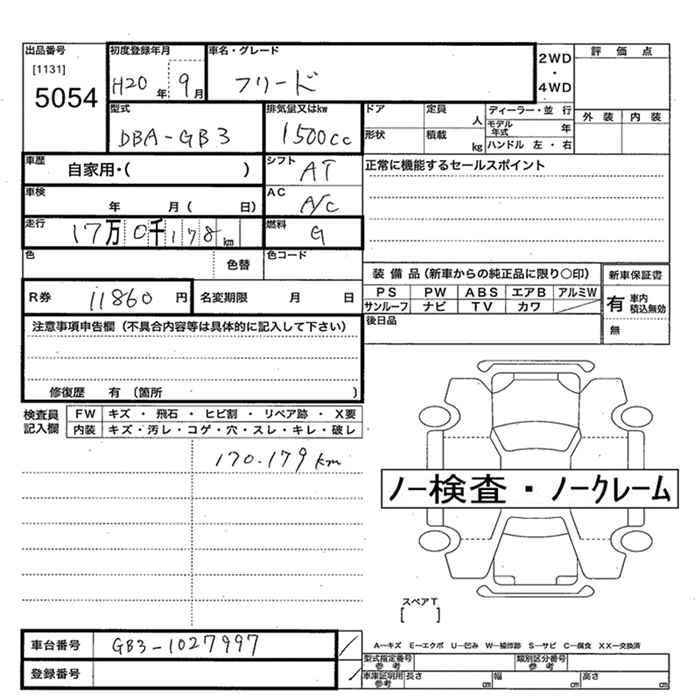 出品番号 初度登録年月 車名・グレード 2WD ・ 4WD 評価点
[1131] 5054 H20年 9月 フリード
型式 DBA-GB3 排気量又はkw 1500cc ドア 定員 人 ディーラー・並行 外装 内装
形状 積載 kg モデル年式 年 ハンドル 左・右
車歴 自家用・( ) シフト AT 正常に機能するセールスポイント
車検 年 月( 日) AC A/C
走行 17万0千178km 燃料 G
色 色替 色コード
装備品(新車からの純正品に限り○印) 新車保証書
R券 11860円 名変期限 月 日 PS PW ABS エアB アルミW 有 車内積込無効
サンルーフ ナビ TV カワ
後日品 無
注意事項申告欄(不具合内容等は具体的に記入して下さい)
修復歴 有(箇所 )
検査員記入欄 FW キズ・飛石・ヒビ割・リペア跡・X要
内装 キズ・汚レ・コゲ・穴・スレ・キレ・破レ
170.179km
ノー検査・ノークレーム
スペアT
[ ]
車台番号 GB3-1027997
A―キズ E―エクボ U―凹み W―補修跡 S―サビ C―腐食 XX―交換済
型式指定番号 参考 類別区分番号 参考
登録番号 車庫証明用 参考 長さ cm 幅 cm 高さ cm